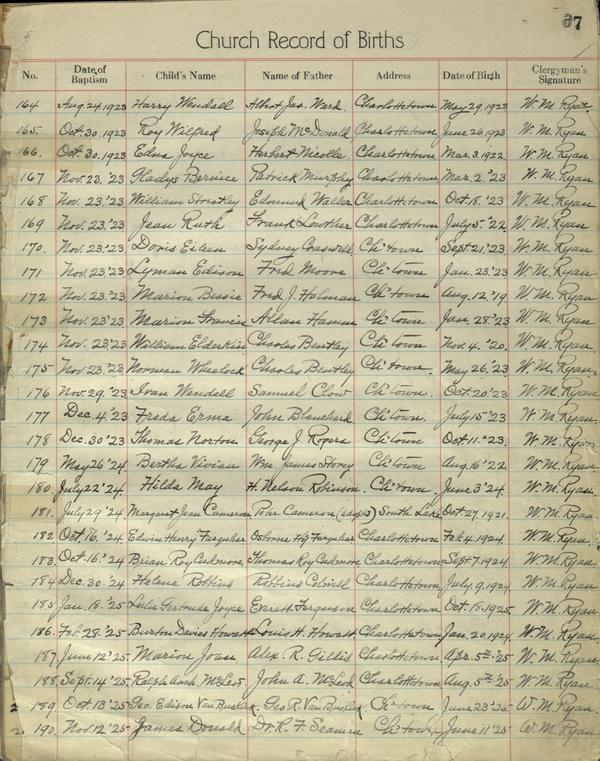 67
Church Record of Births
No. Date of Baptism Child's Name Name of Father Address Date of Birth Clergyman's Signature
164 Aug 24, 1923 Harry Wendall Albert Jas. Ward. Charlottetown May 29, 1923 W. M. Ryan
165. Oct. 30, 1923 Roy Wilfred Joseph McDonald Charlottetown June 26, 1923 W. M. Ryan
166. Oct. 30, 1923 Edna Joyce Herbert Nicolle Charlottetown Mar. 3, 1922. W. M. Ryan
167 Nov. 23, '23 Gladys Bernice Patrick Murphy Charlottetown Mar. 2, '23 W. M. Ryan
168 Nov. 23, '23 William Charlottetown Oct. 15, '23 W. M. Ryan
169 Nov. 23, '23 Jean Ruth Frank Lowther Charlottetown July 5, '22 W. M. Ryan
170. Nov. 23, '23 Doris Eileen Sydney Craswell Ch'town Sept. 21, '23 W. M. Ryan
171 Nov. 23, '23 Lyman Edison Fred Moore Ch'town Jan. 23, '23 W. M. Ryan
172 Nov. 23, '23 Marion Bessie Fred J. Holman Ch'town Aug. 12, '19 W. M. Ryan
173 Nov. 23, '23 Marion Francis Allan Ch'town Jan. 28, '23 W. M. Ryan
174 Nov. 23, '23 William Elderkin Charles Bentley Ch'town Nov. 4, '20. W. M. Ryan
175 Nov. 23, '23 Norman Wheelock Charles Bentley Ch'town. May 26, '23 W. M. Ryan
176 Nov. 29, '23 Ivan Wendell Samuel Clow Ch'town. Oct. 20, '23 W. M. Ryan
177 Dec. 4, '23 Freda Erma John Blanchard Ch'town. July 15, '23 W. M. Ryan
178 Dec. 30, '23 Thomas Norton George J. Rogers Ch'town Oct. 11, '23. W. M. Ryan
179 May 26, '24 Bertha Vivian Wm. James Storey Ch'town Aug. 16, '22 W. M. Ryan
180. July 22, '24 Hilda May H. Nelson Robinson Ch'town June 3, '24 W. M. Ryan
181. July 29, '24 Margaret Jean Cameron Cameron South Lake Oct. 27, 1921. W. M. Ryan
182 Oct. 16, '24 Edwin Henry Farquhar Osborne Farquhar Charlottetown Feb. 4, 1924. W. M. Ryan
183. Oct. 16, '24 Brian Roy Cudmore Thomas Roy Cudmore Charlottetown Sept. 7, 1924 W. M. Ryan
184 Dec. 30, '24 Helene Robbins Robbins Colwill Charlottetown July 9, 1924 W. M. Ryan
185 Jan. 18, '25 Lulu Gertrude Joyce Everett Ferguson Charlottetown Oct. 18, 1925 W. M. Ryan
186. Feb. 28, '25 Burton Davies Howatt Louis H. Howatt Charlottetown Jan. 20, 1924 W. M. Ryan
187 June 12, '25 Marion Joan Alex. R. Gillis Charlottetown Apr. 5th, '25 W. M. Ryan
188 Sept. 14, '25 Ralph Arch. McLeod John A. McLeod Charlottetown Aug. 5th, '25 W. M. Ryan
189 Oct. 13, '25 Geo. Edison Van Buskirk. Geo R. Van Buskirk Ch'town June 23, '25 W. M. Ryan
190. Nov. 12, '25 James Donald Dr. R. F. Seaman Ch'town June 11, '25 W. M. Ryan